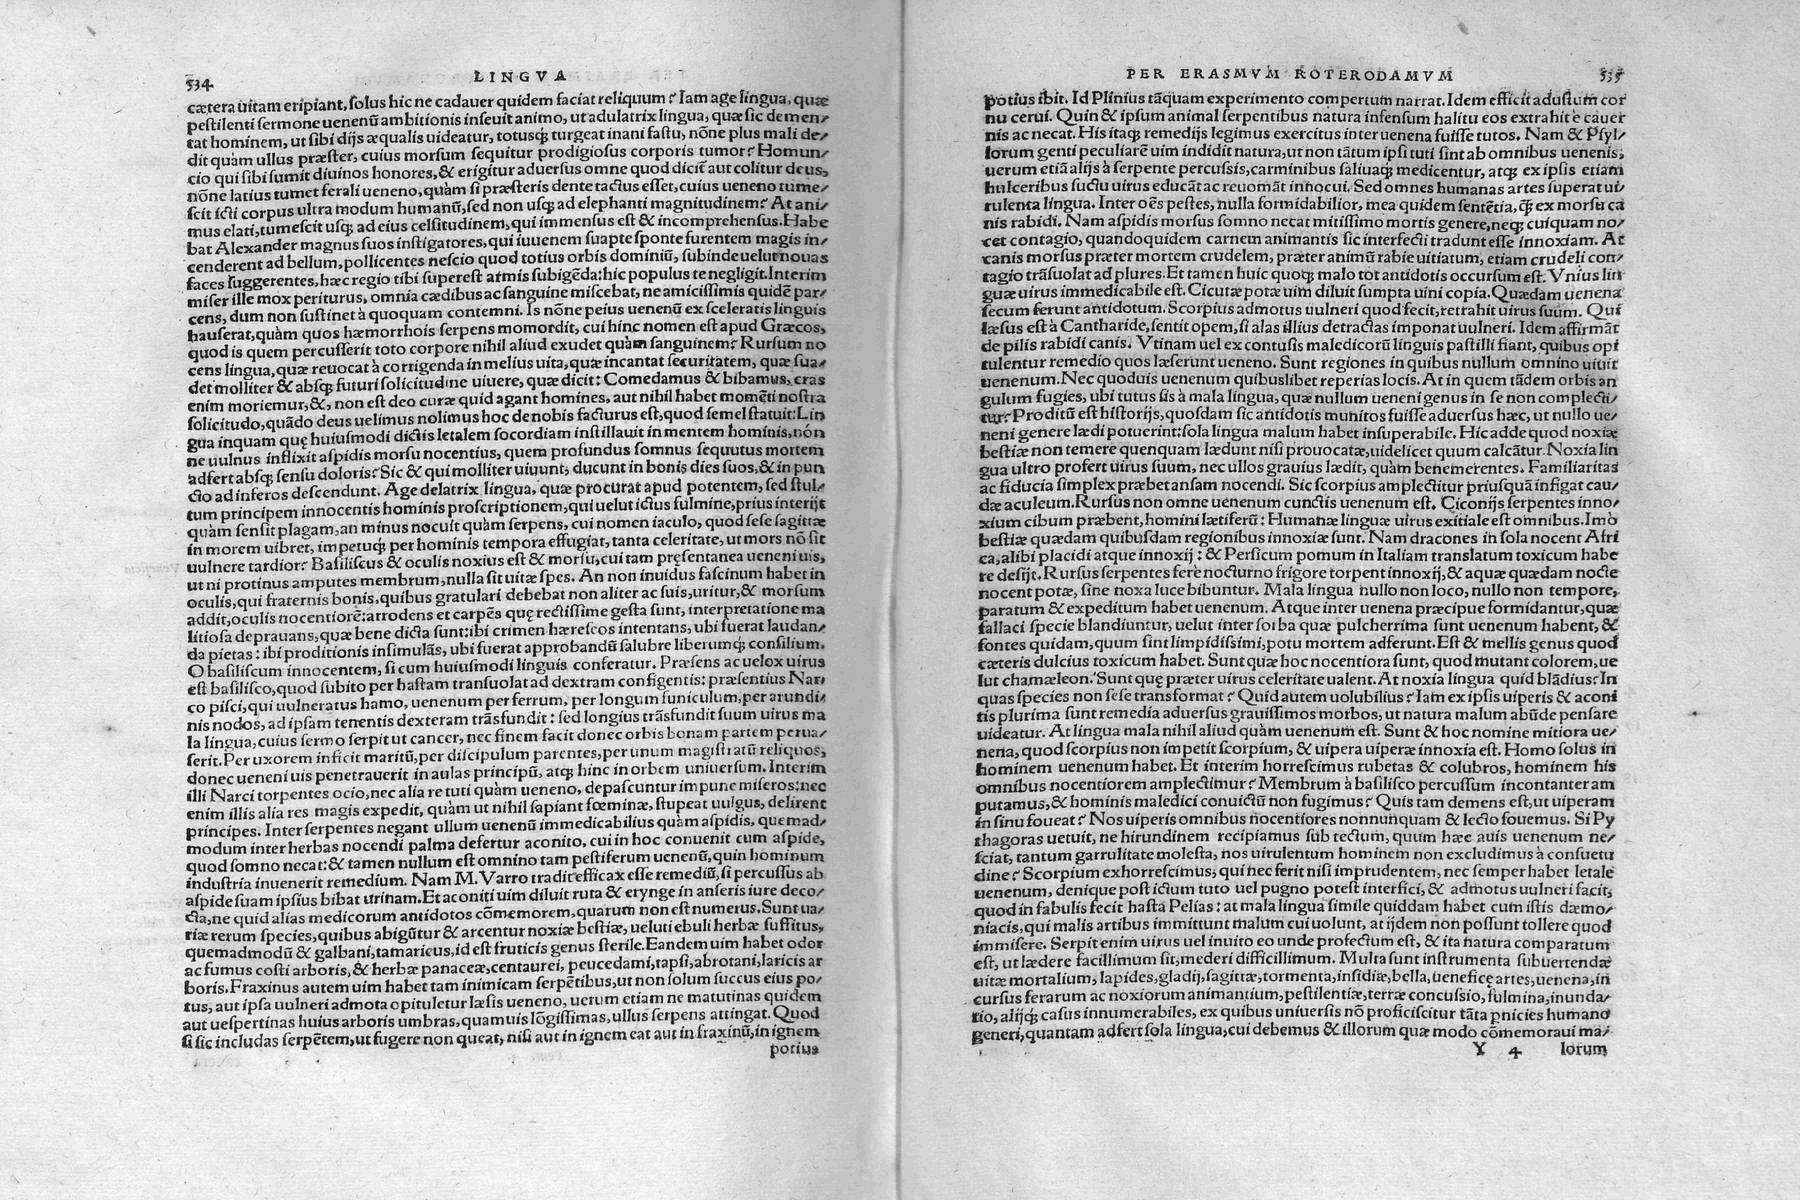 534 LINGVA
cætera uitam eripiant, ſolus hic ne cadauer quidem faciat reliquum? Iam age lingua, quæ
peſtilenti ſermone uenenũ ambitionis inſeuit animo, ut adulatrix lingua, quæ ſic demen/
tat hominem, ut ſibi dijs æqualis uideatur, totusq́; turgeat inani faſtu, nõne plus mali de/
dit quàm ullus præſter, cuius morſum ſequitur prodigioſus corporis tumor? Homun/
cio qui ſibi ſumit diuinos honores, & erigitur aduerſus omne quod dicit̃ aut colitur deus,
nõne latius tumet ferali ueneno, quàm ſi præſteris dente tactus eſſet, cuius ueneno tume/
ſcit icti corpus ultra modum humanũ, ſed non uſq; ad elephanti magnitudinem? At ani/
mus elati, tumeſcit uſq; ad eius celſitudinem, qui immenſus eſt & incomprehenſus. Habe
bat Alexander magnus ſuos inſtigatores, qui iuuenem ſuapte ſponte furentem magis in/
cenderent ad bellum, pollicentes neſcio quod totius orbis dominiũ, ſubinde uelut nouas
faces ſuggerentes, hæc regio tibi ſupereſt armis ſubigẽda: hic populus te negligit. Interim
miſer ille mox periturus, omnia cædibus ac ſanguine miſcebat, ne amiciſſimis quidẽ par/
cens, dum non ſuſtinet à quoquam contemni. Is nõne peius uenenũ ex ſceleratis linguis
hauſerat, quàm quos hæmorrhois ſerpens momordit, cui hinc nomen eſt apud Græcos,
quod is quem percuſſerit toto corpore nihil aliud exudet quàm ſanguinem? Rurſum no
cens lingua, quæ reuocat à corrigenda in melius uita, quæ incantat ſecuritatem, quæ ſua/
det molliter & abſq; futuri ſolicitudine uiuere, quæ dicit: Comedamus & bibamus, cras
enim moriemur, &, non eſt deo curæ quid agant homines, aut nihil habet momẽti noſtra
ſolicitudo, quãdo deus uelimus nolimus hoc de nobis facturus eſt, quod ſemel ſtatuit: Lin
gua inquam quę huiuſmodi dictis letalem ſocordiam inſtillauit in mentem hominis, nón
ne uulnus inflixit aſpidis morſu nocentius, quem profundus ſomnus ſequutus mortem
adfert abſq; ſenſu doloris? Sic & qui molliter uiuunt, ducunt in bonis dies ſuos, & in pun
cto ad inferos deſcendunt. Age delatrix lingua, quæ procurat apud potentem, ſed ſtul/
tum principem innocentis hominis proſcriptionem, qui uelut ictus fulmine, prius interijt
quàm ſenſit plagam, an minus nocuit quàm ſerpens, cui nomen iaculo, quod ſeſe ſagittæ
in morem uibret, impetuq́; per hominis tempora effugiat, tanta celeritate, ut mors nõ ſit
uulnere tardior? Baſiliſcus & oculis noxius eſt & morſu, cui tam pręſentanea ueneni uis,
ut ni protinus amputes membrum, nulla ſit uitæ ſpes. An non inuidus faſcinum habet in
oculis, qui fraternis bonis, quibus gratulari debebat non aliter ac ſuis, uritur, & morſum
addit, oculis nocentiorẽ: arrodens et carpẽs quę rectiſſime geſta ſunt, interpretatione ma
litioſa deprauans, quæ bene dicta ſunt: ibi crimen hæreſeos intentans, ubi fuerat laudan/
da pietas: ibi proditionis inſimulãs, ubi fuerat approbandũ ſalubre liberumq́; conſilium.
O baſiliſcum innocentem, ſi cum huiuſmodi linguis conferatur. Præſens ac uelox uirus
eſt baſiliſco, quod ſubito per haſtam tranſuolat ad dextram configentis: præſentius Nar/
co piſci, qui uulneratus hamo, uenenum per ferrum, per longum funiculum, per arundi/
nis nodos, ad ipſam tenentis dexteram trãsfundit: ſed longius trãsfundit ſuum uirus ma
la lingua, cuius ſermo ſerpit ut cancer, nec finem facit donec orbis bonam partem perua/
ſerit. Per uxorem inficit maritũ, per diſcipulum parentes, per unum magiſtratũ reliquos,
donec ueneni uis penetrauerit in aulas principũ, atq; hinc in orbem uniuerſum. Interim
illi Narci torpentes ocio, nec alia re tuti quàm ueneno, depaſcuntur impune miſeros: nec
enim illis alia res magis expedit, quàm ut nihil ſapiant fœminæ, ſtupeat uulgus, delirent
principes. Inter ſerpentes negant ullum uenenũ immedicabilius quàm aſpidis, quemad/
modum inter herbas nocendi palma defertur aconito, cui in hoc conuenit cum aſpide,
quod ſomno necat: & tamen nullum eſt omnino tam peſtiferum uenenũ, quin hominum
induſtria inuenerit remedium. Nam M. Varro tradit efficax eſſe remediũ, ſi percuſſus ab
aſpide ſuam ipſius bibat urinam. Et aconiti uim diluit ruta & erynge in anſeris iure deco/
cta, ne quid alias medicorum antidotos cõmemorem, quarum non eſt numerus. Sunt ua/
riæ rerum ſpecies, quibus abigũtur & arcentur noxiæ beſtiæ, ueluti ebuli herbæ ſuffitus,
quemadmodũ & galbani, tamaricus, id eſt fruticis genus ſterile. Eandem uim habet odor
ac fumus coſti arboris, & herbæ panaceæ, centaurei, peucedami, tapſi, abrotani, laricis ar
boris. Fraxinus autem uim habet tam inimicam ſerpẽtibus, ut non ſolum ſuccus eius po/
tus, aut ipſa uulneri admota opituletur læſis ueneno, uerum etiam ne matutinas quidem
aut ueſpertinas huius arboris umbras, quamuis lõgiſſimas, ullus ſerpens attingat. Quod
ſi ſic includas ſerpẽtem, ut fugere non queat, niſi aut in ignem eat aut in fraxinũ, in ignem
potius
PER ERASMVM ROTERODAMVM 535
potius ibit. Id Plinius tãquam experimento compertum narrat. Idem efficit aduſtum cor
nu cerui. Quin & ipſum animal ſerpentibus natura infenſum halitu eos extrahit e cauer
nis ac necat. His itaq; remedijs legimus exercitus inter uenena fuiſſe tutos. Nam & Pſyl/
lorum genti peculiarẽ uim indidit natura, ut non tãtum ipſi tuti ſint ab omnibus uenenis,
uerum etiã alijs à ſerpente percuſsis, carminibus ſaliuaq́; medicentur, atq; ex ipſis etiam
hulceribus ſuctu uirus educãt ac reuomãt innocui. Sed omnes humanas artes ſuperat ui/
rulenta lingua. Inter oẽs peſtes, nulla formidabilior, mea quidem ſentẽtia, q̃ ex morſu ca
nis rabidi. Nam aſpidis morſus ſomno necat mitiſſimo mortis genere, neq; cuiquam no/
cet contagio, quandoquidem carnem animantis ſic interfecti tradunt eſſe innoxiam. At
canis morſus præter mortem crudelem, præter animũ rabie uitiatum, etiam crudeli con/
tagio trãſuolat ad plures. Et tamen huic quoq; malo tot antidotis occurſum eſt. Vnius lin
guæ uirus immedicabile eſt. Cicutæ potæ uim diluit ſumpta uini copia. Quædam uenena
ſecum ferunt antidotum. Scorpius admotus uulneri quod fecit, retrahit uirus ſuum. Qui
læſus eſt à Cantharide, ſentit opem, ſi alas illius detractas imponat uulneri. Idem affirmãt
de pilis rabidi canis. Vtinam uel ex contuſis maledicorũ linguis paſtilli fiant, quibus opi
tulentur remedio quos læſerunt ueneno. Sunt regiones in quibus nullum omnino uiuit
uenenum. Nec quoduis uenenum quibuslibet reperias locis. At in quem tãdem orbis an
gulum fugies, ubi tutus ſis à mala lingua, quæ nullum ueneni genus in ſe non complecti/
tur? Proditũ eſt hiſtorijs, quoſdam ſic antidotis munitos fuiſſe aduerſus hæc, ut nullo ue/
neni genere lædi potuerint: ſola lingua malum habet inſuperabile. Hic adde quod noxiæ
beſtiæ non temere quenquam lædunt niſi prouocatæ, uidelicet quum calcãtur. Noxia lin
gua ultro profert uirus ſuum, nec ullos grauius lædit, quàm benemerentes. Familiaritas
ac fiducia ſimplex præbet anſam nocendi. Sic ſcorpius amplectitur priuſquã infigat cau/
dæ aculeum. Rurſus non omne uenenum cunctis uenenum eſt. Ciconijs ſerpentes inno/
xium cibum præbent, homini lætiferũ: Humanæ linguæ uirus exitiale eſt omnibus. Imò
beſtiæ quædam quibuſdam regionibus innoxiæ ſunt. Nam dracones in ſola nocent Afri
ca, alibi placidi atque innoxij: & Perſicum pomum in Italiam translatum toxicum habe
re deſijt. Rurſus ſerpentes ferè nocturno frigore torpent innoxij, & aquæ quædam nocte
nocent potæ, ſine noxa luce bibuntur. Mala lingua nullo non loco, nullo non tempore,
paratum & expeditum habet uenenum. Atque inter uenena præcipue formidantur, quæ
fallaci ſpecie blandiuntur, uelut inter ſorba quæ pulcherrima ſunt uenenum habent, &
fontes quidam, quum ſint limpidiſſimi, potu mortem adferunt. Eſt & mellis genus quod
cæteris dulcius toxicum habet. Sunt quæ hoc nocentiora ſunt, quod mutant colorem, ue
lut chamæleon. Sunt quę præter uirus celeritate ualent. At noxia lingua quid blãdius? In
quas ſpecies non ſeſe transformat? Quid autem uolubilius? Iam ex ipſis uiperis & aconi
tis plurima ſunt remedia aduerſus grauiſſimos morbos, ut natura malum abũde penſare
uideatur. At lingua mala nihil aliud quàm uenenum eſt. Sunt & hoc nomine mitiora ue/
nena, quod ſcorpius non impetit ſcorpium, & uipera uiperæ innoxia eſt. Homo ſolus in
hominem uenenum habet. Et interim horreſcimus rubetas & colubros, hominem his
omnibus nocentiorem amplectimur? Membrum à baſiliſco percuſſum incontanter am
putamus, & hominis maledici conuictũ non fugimus? Quis tam demens eſt, ut uiperam
in ſinu foueat? Nos uiperis omnibus nocentiores nonnunquam & lecto fouemus. Si Py
thagoras uetuit, ne hirundinem recipiamus ſub tectum, quum hæc auis uenenum ne/
ſciat, tantum garrulitate moleſta, nos uirulentum hominem non excludimus à conſuetu
dine? Scorpium exhorreſcimus, qui nec ferit niſi imprudentem, nec ſemper habet letale
uenenum, denique poſt ictum tuto uel pugno poteſt interfici, & admotus uulneri facit,
quod in fabulis fecit haſta Pelias: at mala lingua ſimile quiddam habet cum iſtis dæmo/
niacis, qui malis artibus immittunt malum cui uolunt, at ijdem non poſſunt tollere quod
immiſere. Serpit enim uirus uel inuito eo unde profectum eſt, & ita natura comparatum
eſt, ut lædere facillimum ſit, mederi difficillimum. Multa ſunt inſtrumenta ſubuertendæ
uitæ mortalium, lapides, gladij, ſagittæ, tormenta, inſidiæ, bella, ueneficę artes, uenena, in
curſus ferarum ac noxiorum animantium, peſtilentiæ, terræ concuſsio, fulmina, inunda/
tio, alijq́; caſus innumerabiles, ex quibus uniuerſis nõ proficiſcitur tãta pnicies humano
generi, quantam adfert ſola lingua, cui debemus & illorum quæ modo cõmemoraui ma/
Y 4 lorum